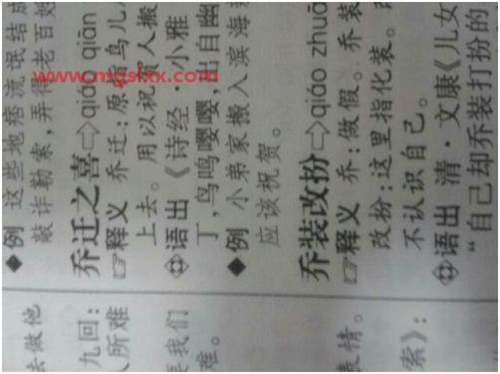 ◆例 这些地痞流氓结成
敲诈勒索，弄得老百姓
乔迁之喜⇨qiáo qiān
☞释义 乔迁：原指鸟儿
上去。用以祝贺人搬
语出《诗经·小雅
丁，鸟鸣嘤嘤，出自幽
◆例 小弟家搬入滨海
应该祝贺。
乔装改扮⇨qiáo zhuā
☞释义 乔：做假。乔装
改扮：这里指化装。
不认识自己。
语出 清·文康《儿女
“自己却乔装打扮的
去做他
九回：
人所难
我们
难。
表情。
索》：